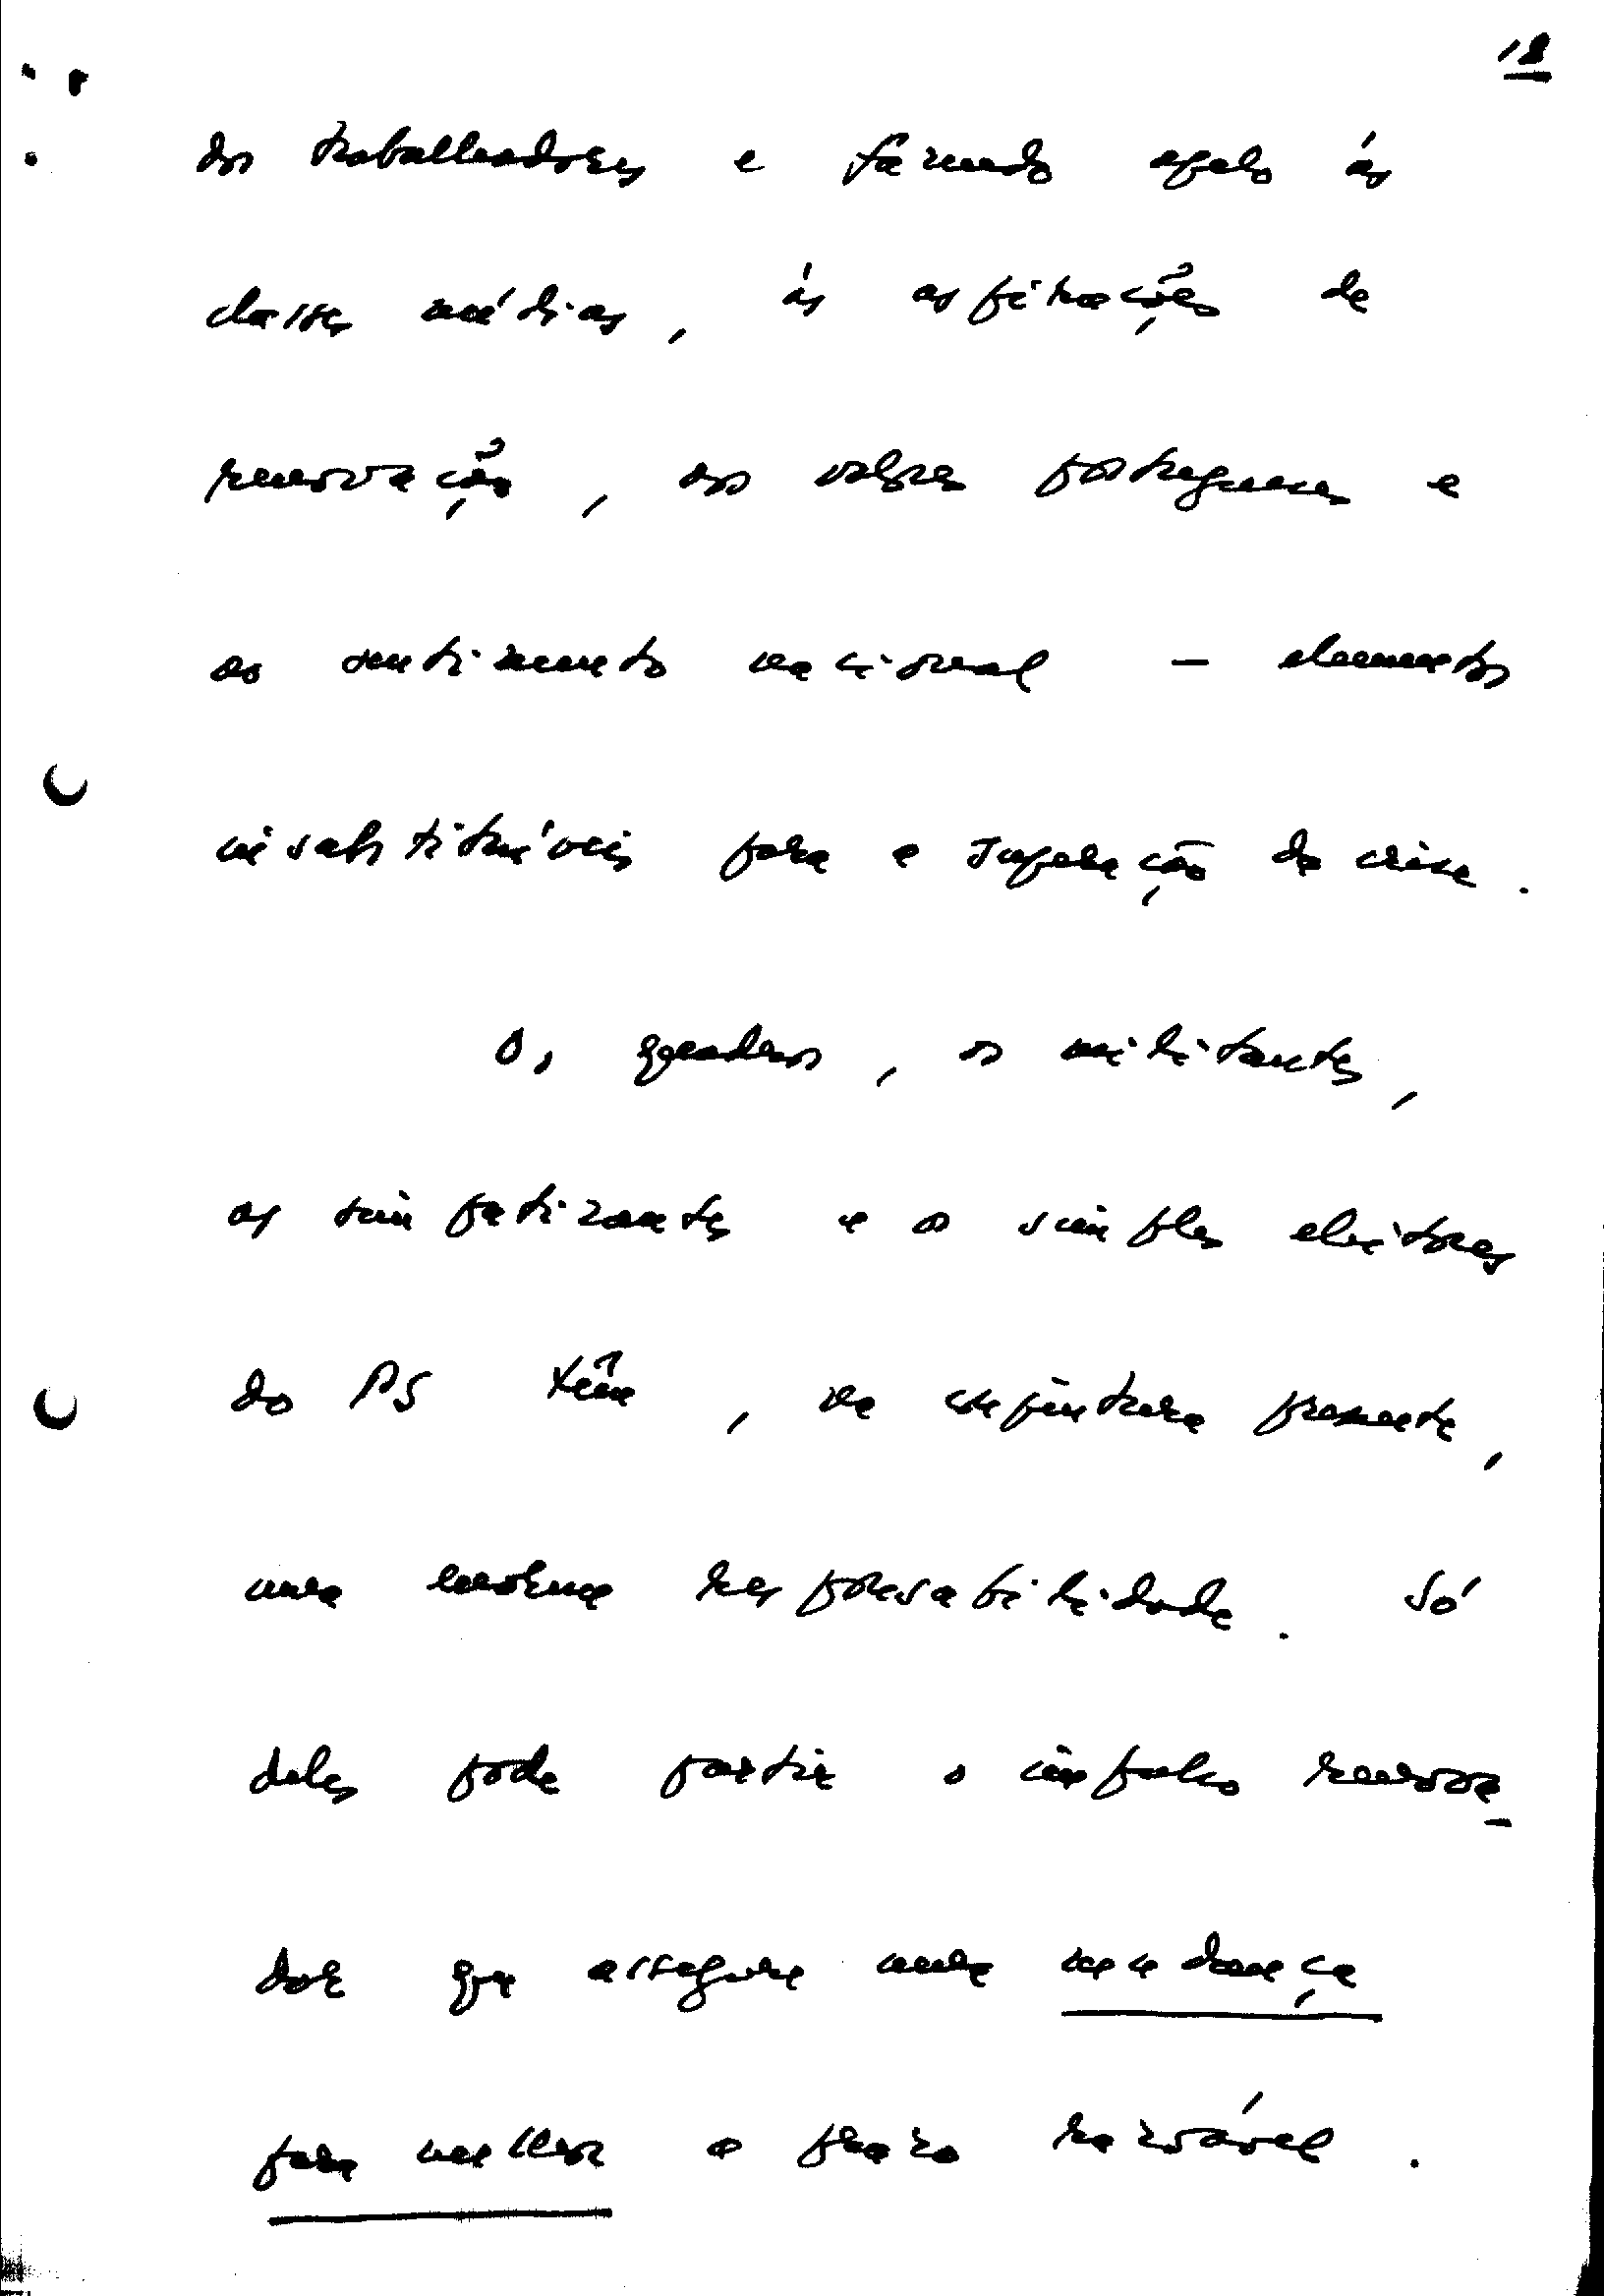 18
dos trabalhadores e fazendo apelo às
classes médias, às aspirações de
renovação, aos valores portugueses e
ao sentimento nacional - elementos
insubstituíveis para a superação da crise.
Os quadros, os militantes,
os simpatizantes e os simples eleitores
do PS têm, na conjuntura presente,
uma enorme responsabilidade. Só
deles pode partir o impulso renova-
dor que assegure uma mudança
para melhor a prazo razoável.